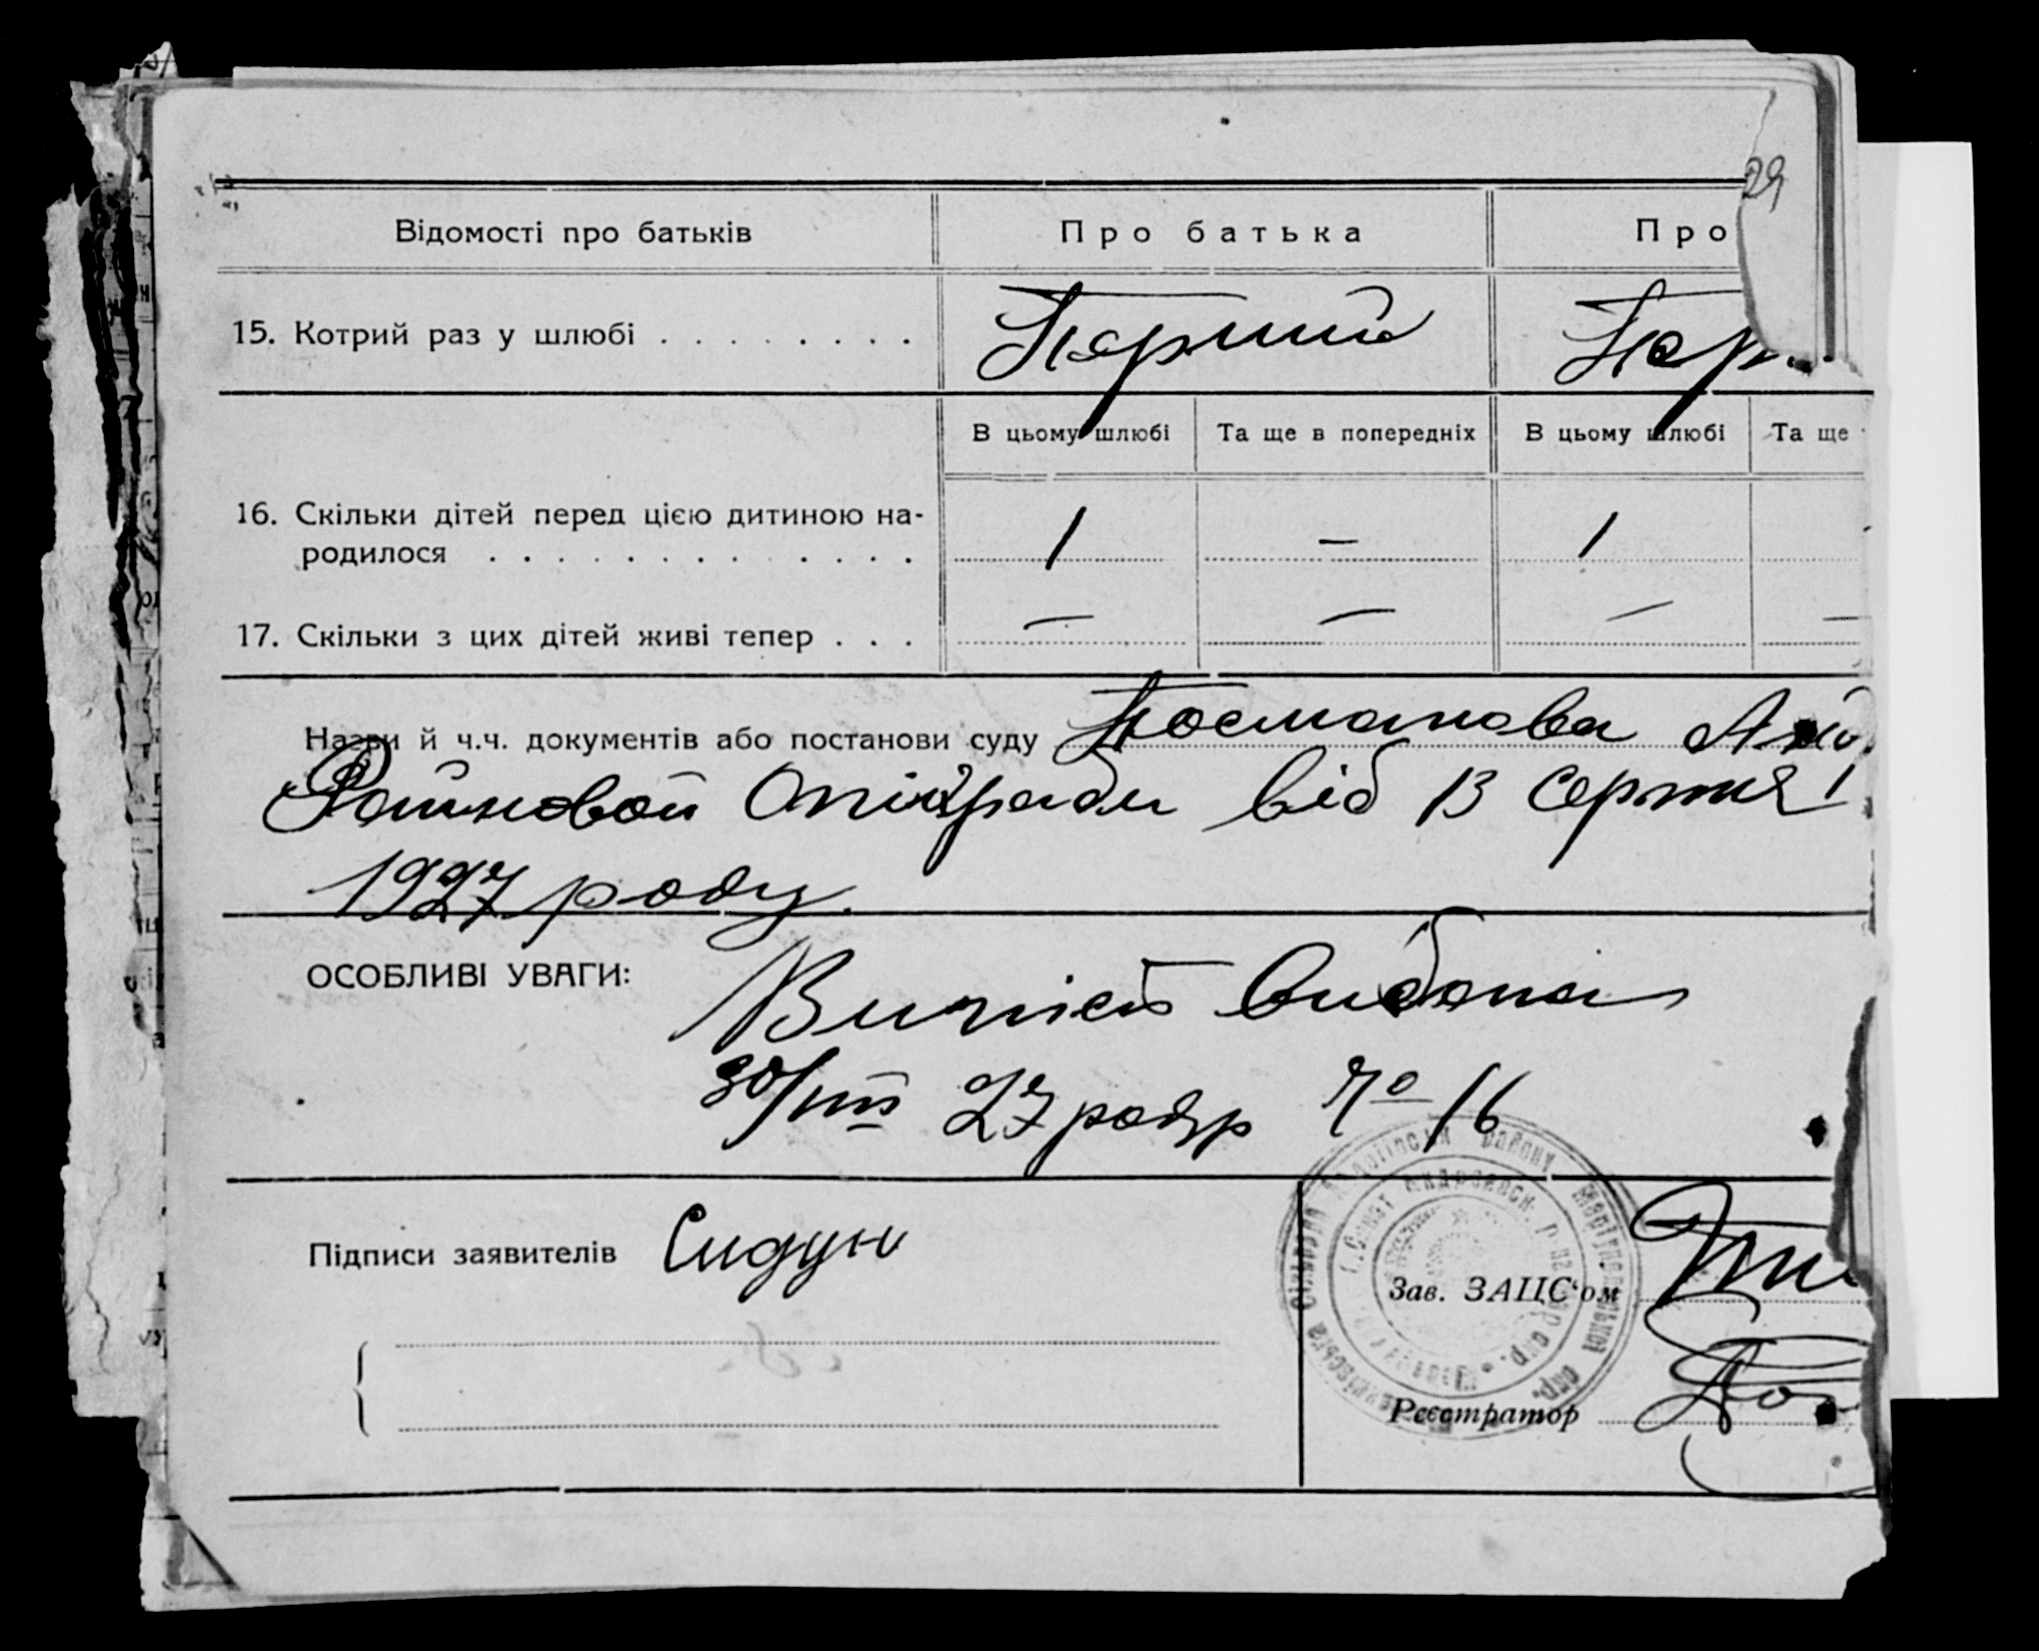 29
Відомості про батьків Про батька Про
15. Котрий раз у шлюбі . . . . . . . . Перший Пер
В цьому шлюбі Та ще в попередніх В цьому шлюбі Та ще
16. Скільки дітей перед цією дитиною на-
родилося . . . . . . . . . . . . 1 — 1
17. Скільки з цих дітей живі тепер . . . — — — —
Назви й ч.ч. документів або постанови суду Посманова
Районвой Опікради від 13 Серпня
1927 року
ОСОБЛИВІ УВАГИ:
Випись видана
30/VIII 27 року № 16
Підписи заявителів Сидун
Зав. ЗАЦС‘ом
Реєстратор